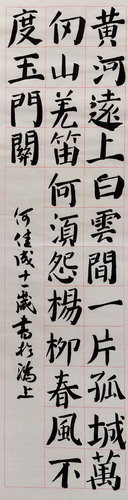 黃河遠上白雲間一片孤城萬
仞山羌笛何須怨楊柳春風不
度玉門關
何佳成十一歲書於鴻上